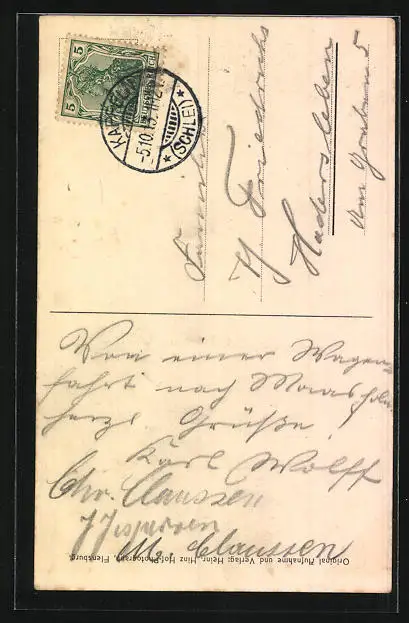 5 5
KAPPELN
-5.10.10.11-12
*(SCHLEI)*
Familie
H. Friedrichs
Hadersleben
Am Graben 5
Von einer Wagen-
fahrt nach Maasholm
herzl Grüße!
Karl Wolff
Chr. Claussen
J Jespersen
M. Claussen
Original Aufnahme und Verlag: Heinr. Hinz Hof-Photograph, Flensburg.